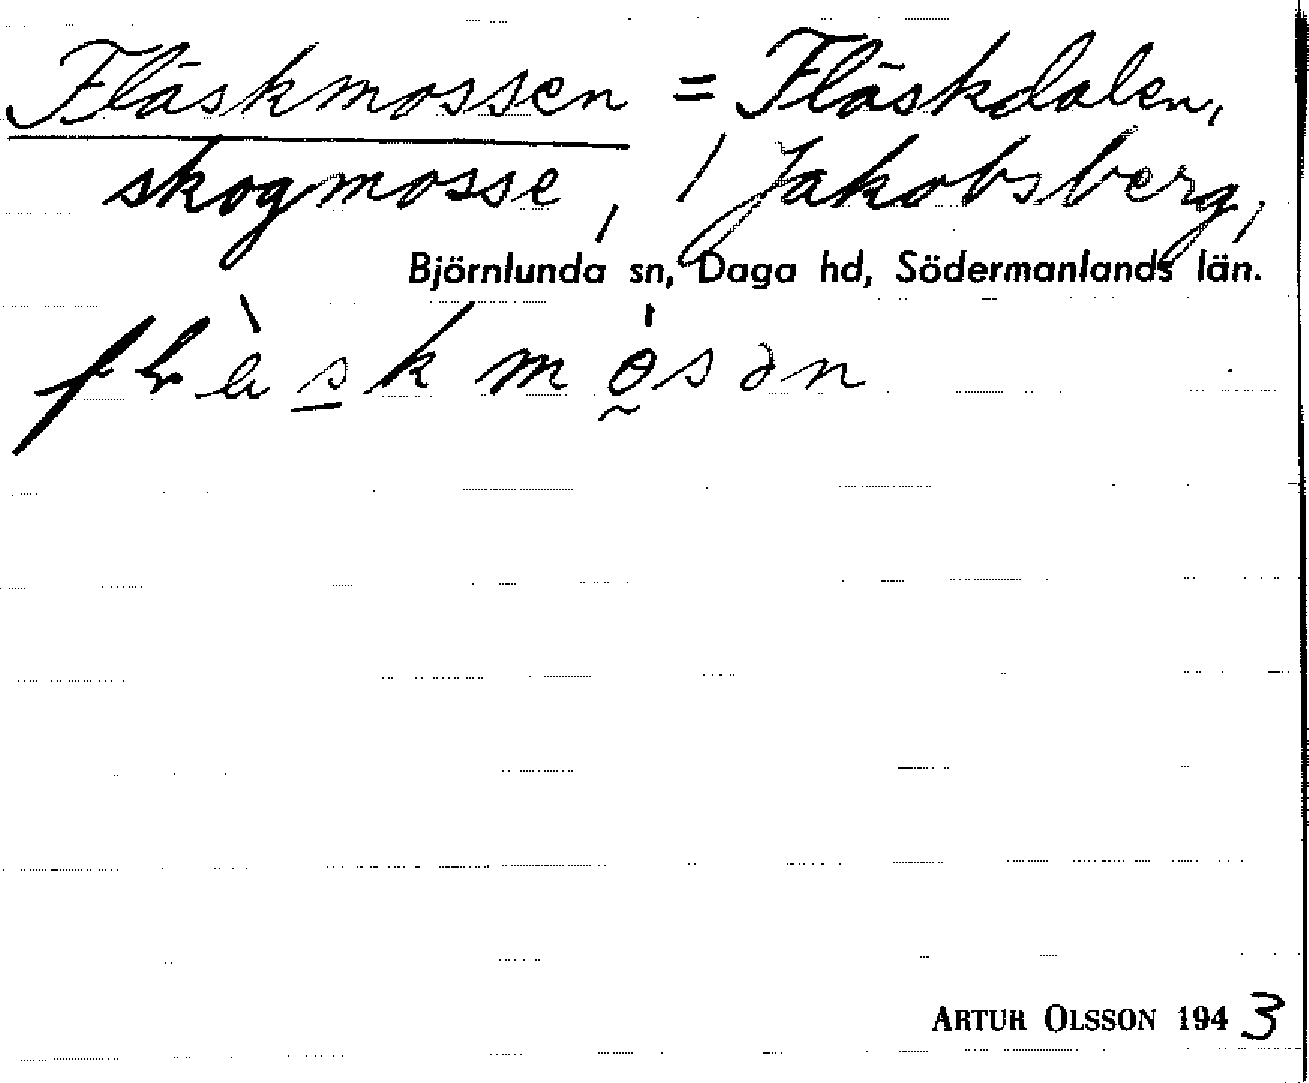 Fläskmossen = Fläskdalen,
skogmosse, / Jakobsberg,
Björnlunda sn, Daga hd, Södermanlands län.
ARTUR OLSSON 1943